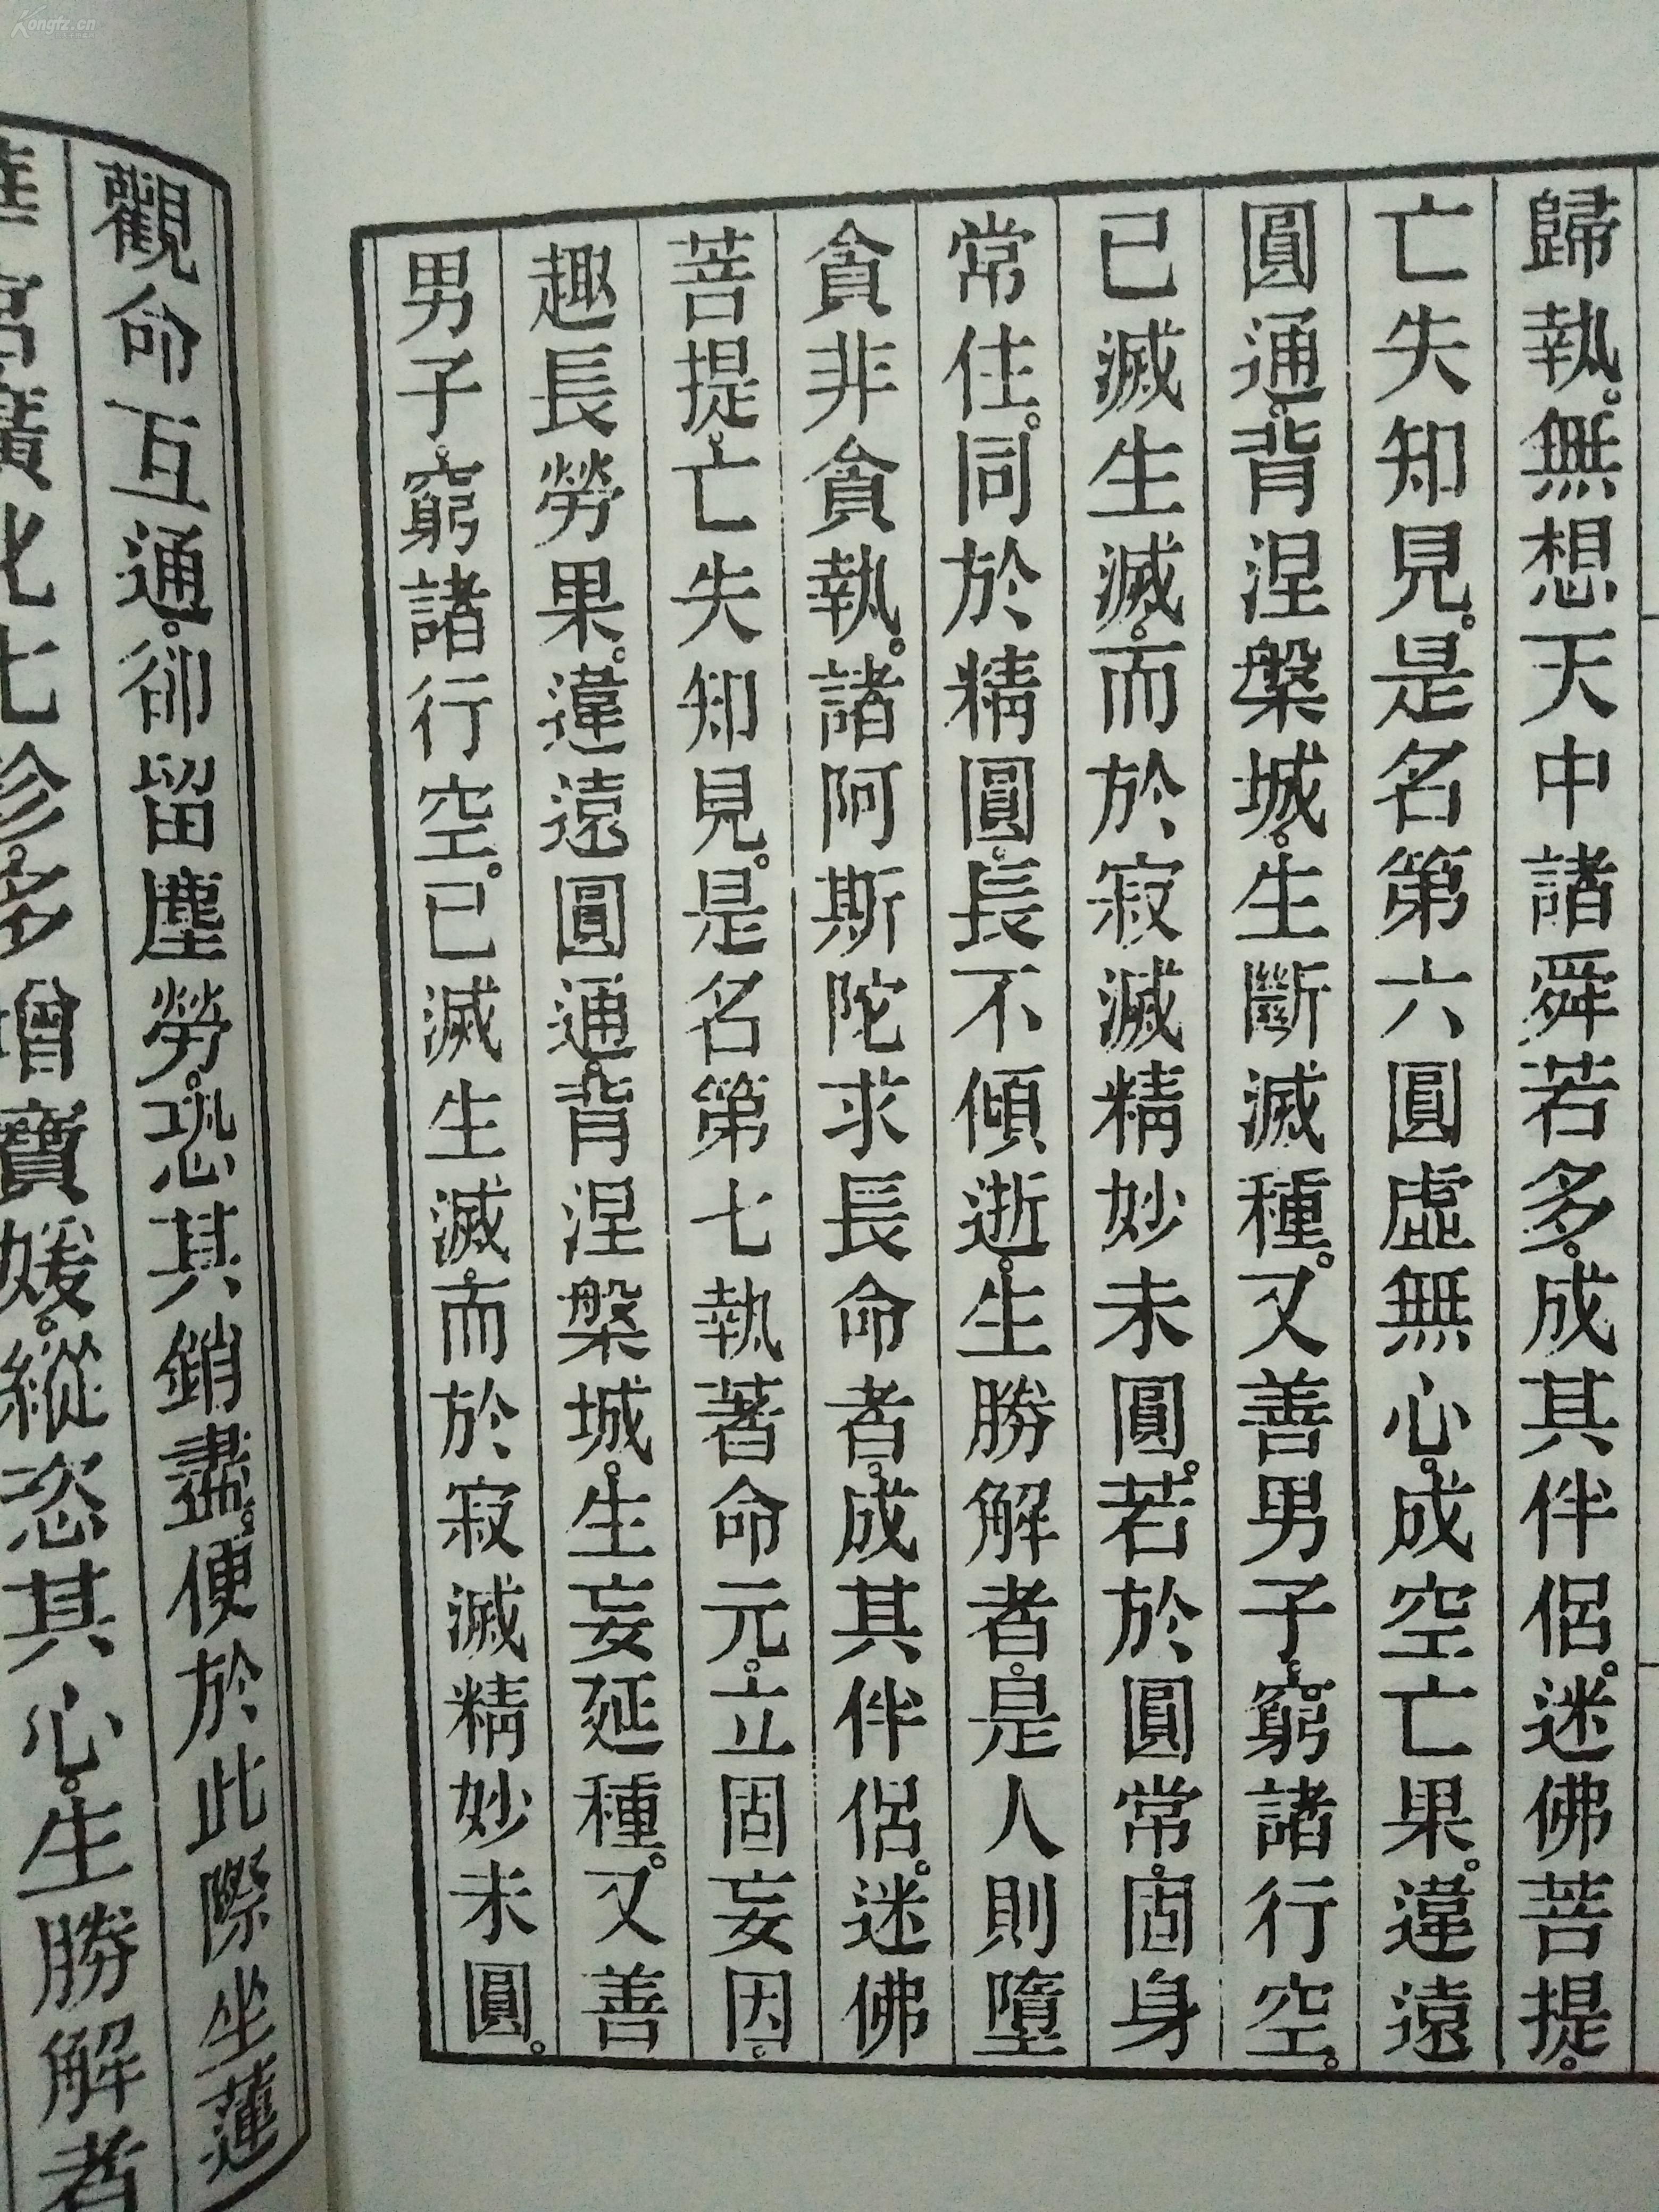 歸執。無想天中諸舜若多。成其伴侶。迷佛菩提。
亡失知見。是名第六圓虛無心。成空亡果。違遠
圓通。背涅槃城。生斷滅種。又善男子。窮諸行空。
已滅生滅。而於寂滅精妙未圓。若於圓常。固身
常住。同於精圓。長不傾逝。生勝解者。是人則墮
貪非貪執。諸阿斯陀求長命者。成其伴侶。迷佛
菩提。亡失知見。是名第七執著命元。立固妄因。
趣長勞果。違遠圓通。背涅槃城。生妄延種。又善
男子。窮諸行空。已滅生滅。而於寂滅精妙未圓。
觀命互通。卻留塵勞。恐其銷盡。便於此際坐蓮
華宮。廣化七珍。多增寶媛。縱恣其心。生勝解者
Kongfz.cn